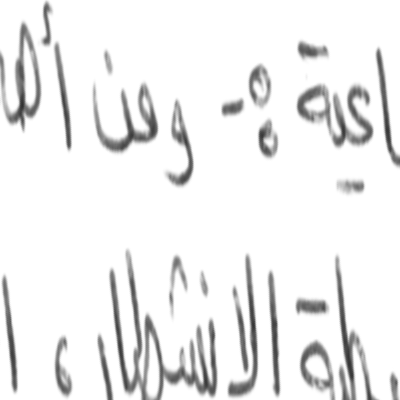 اعية :- ومن أهـ
طة الانشطار ، ا